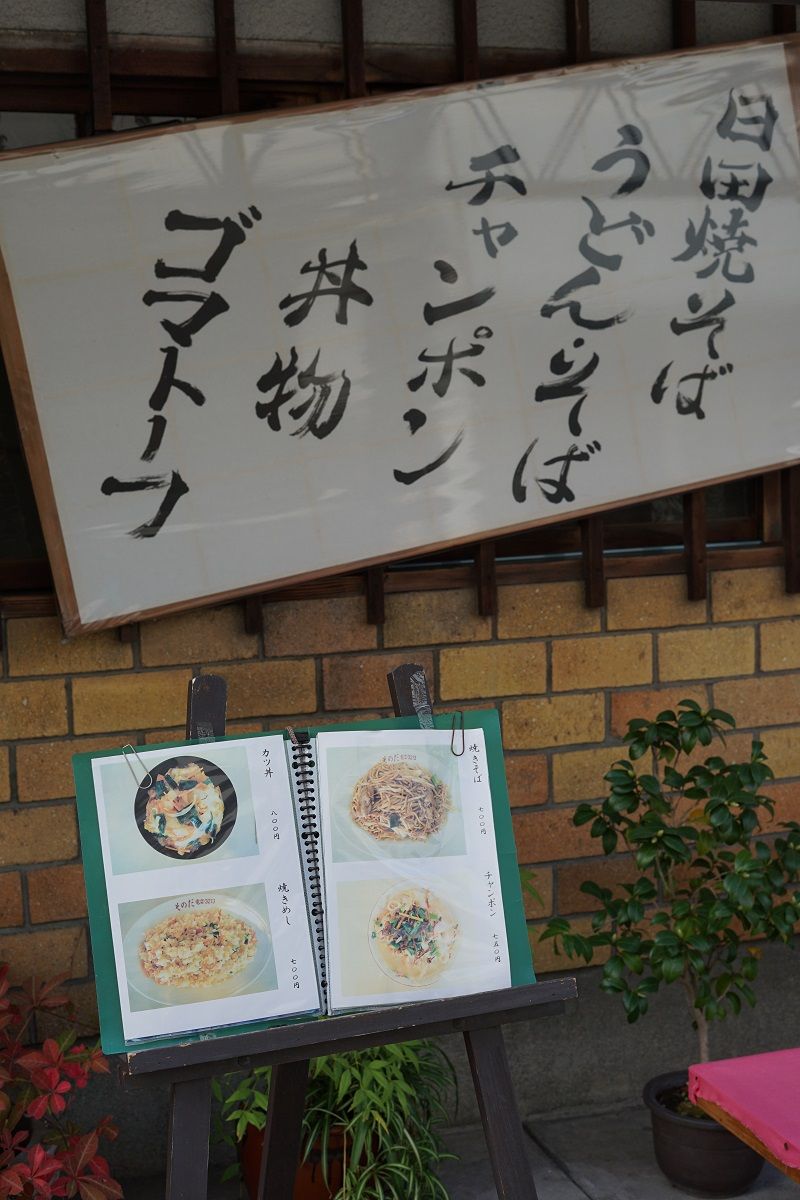 日田焼そば
うどん・そば
チャンポン
丼物
ゴマトーフ
カツ丼
八〇〇円
焼きめし
七〇〇円
焼きそば
七〇〇円
チャンポン
七五〇円
そのだ
そのだ